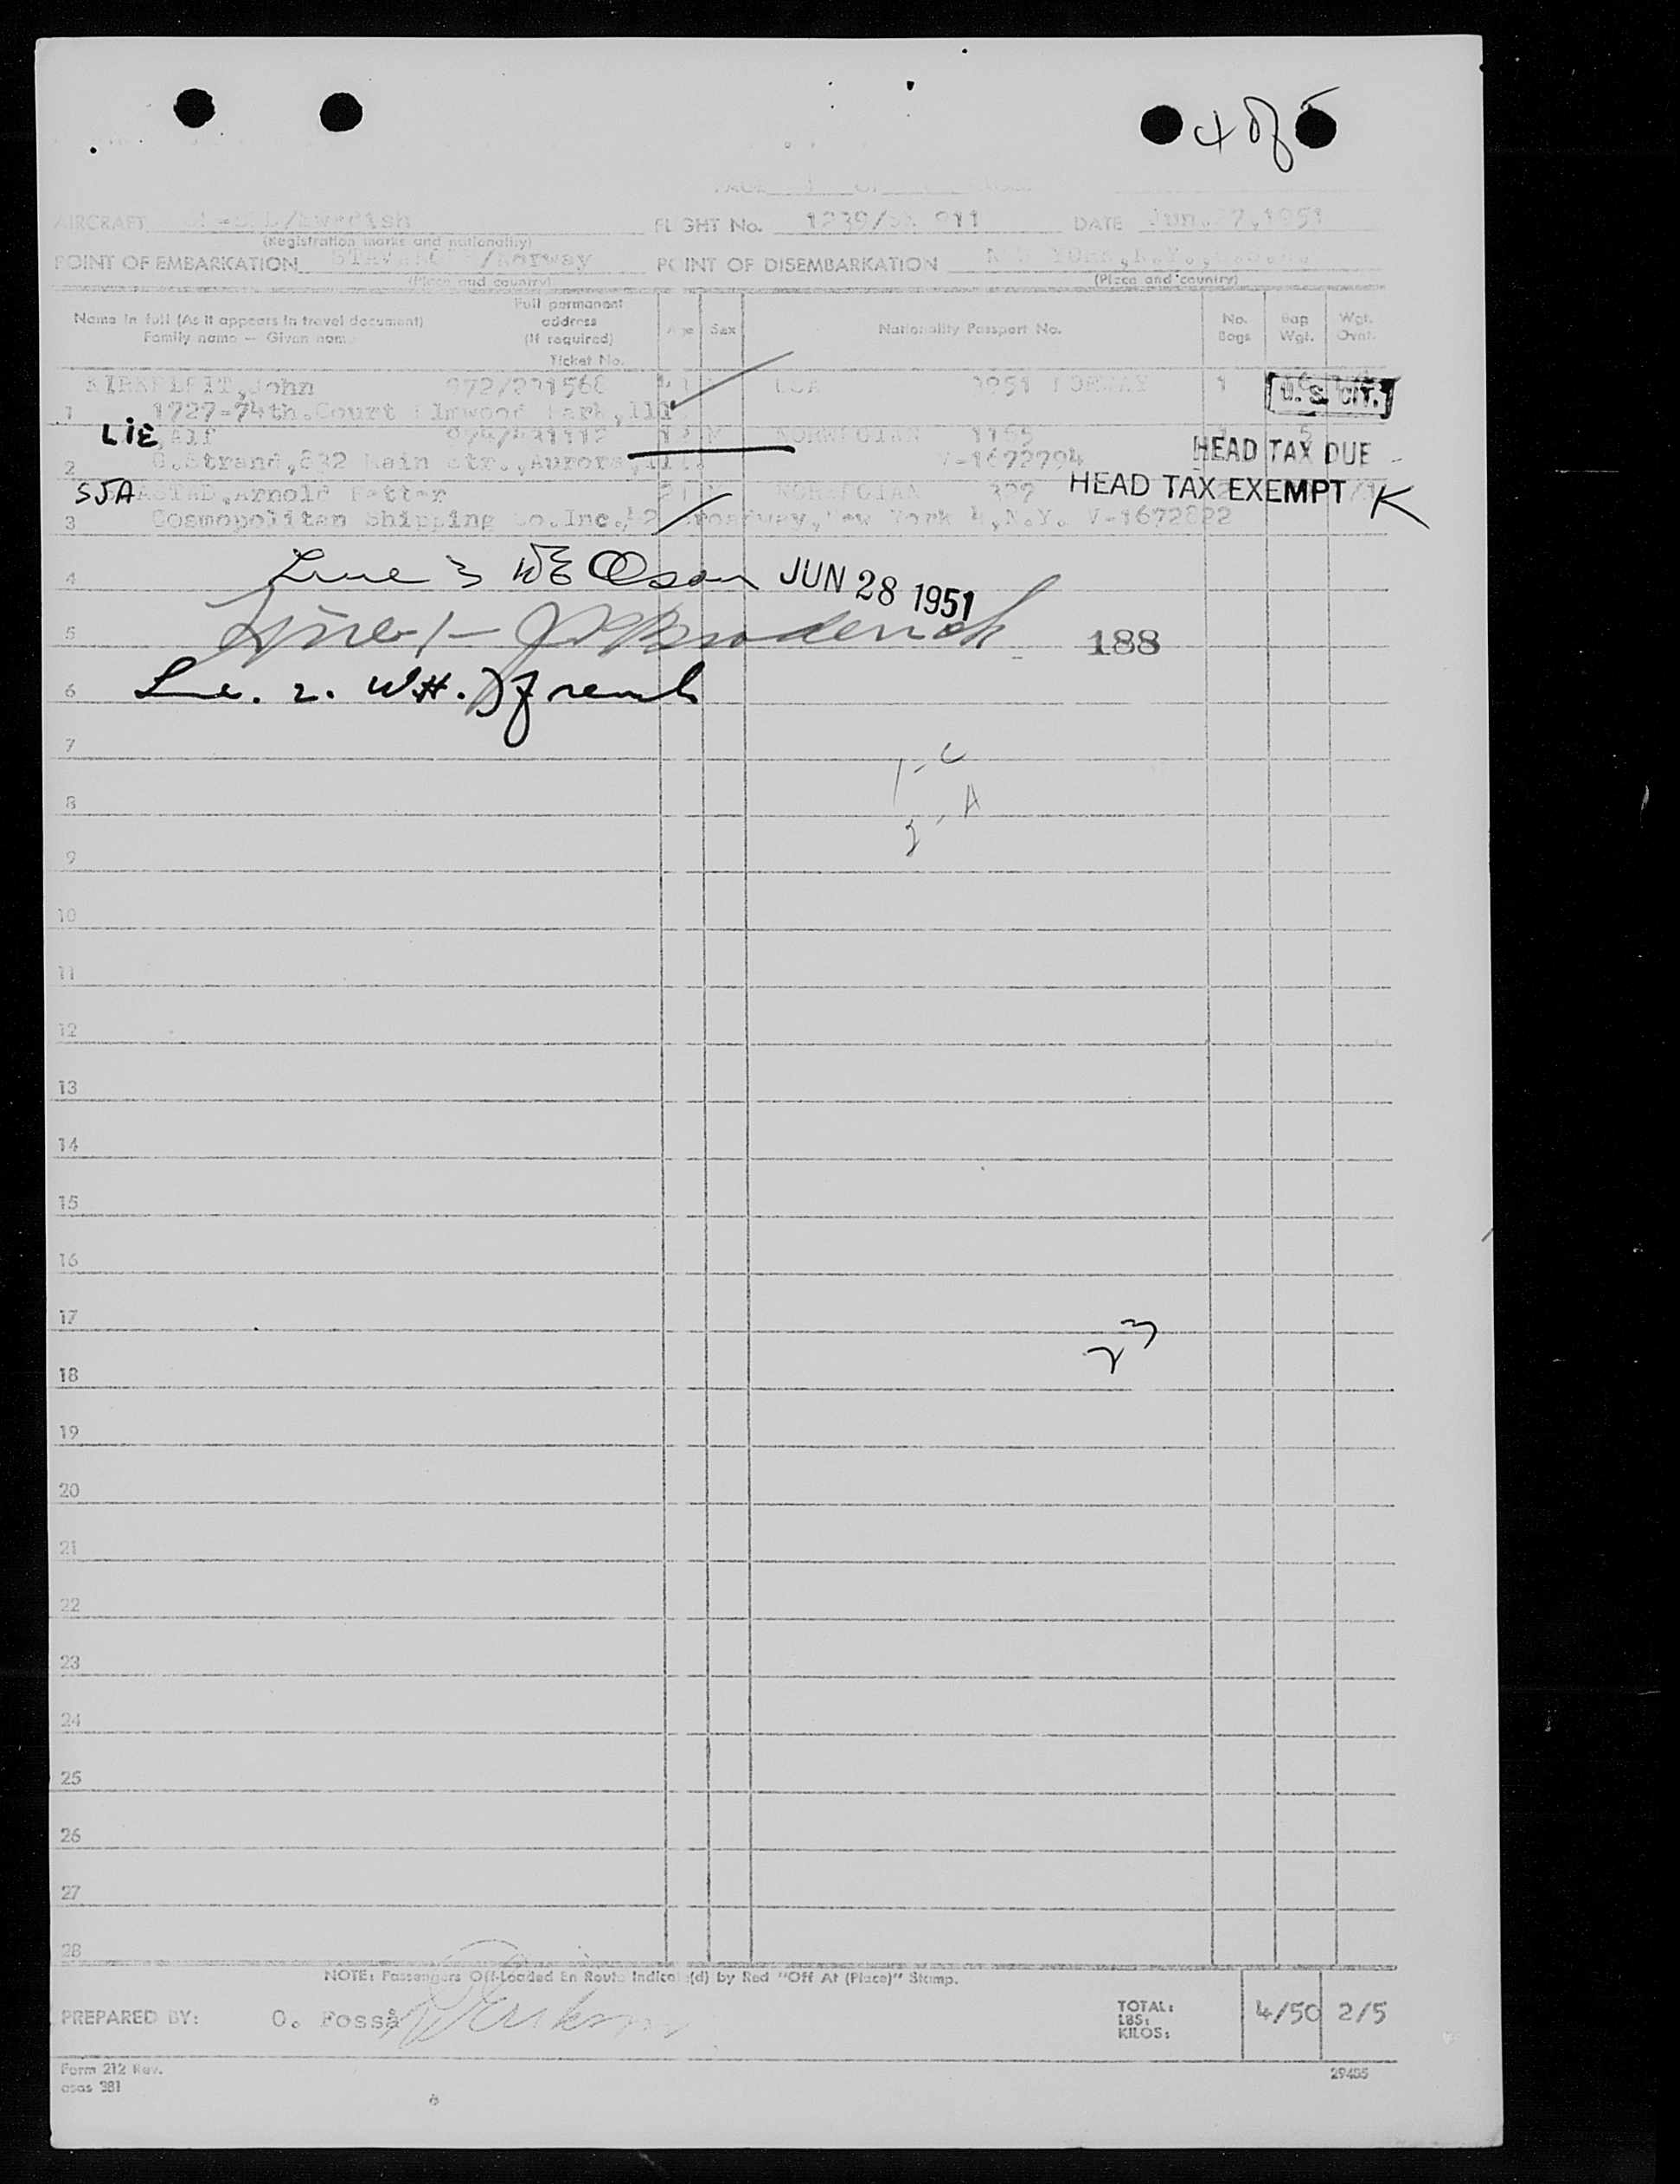 4 of 5
PAGE OF
AIRCRAFT /Swedish FLIGHT No. 1239/SK 911 DATE Jun.27,1951
(Registration marks and nationality)
POINT OF EMBARKATION STAVANGER/Norway POINT OF DISEMBARKATION NEW YORK,N.Y.,
(Place and country) (Place and country)
Name in full (As it appears in travel document) Family name — Given name
Full permanent address (If required) Ticket No.
Age Sex Nationality Passport No. No. Bags Bag Wgt. Wgt. Ovnt.
John 972/291568 USA 3951 NORWAY 1 U.S. CIT.
1 1727-74th.Court Elmwood Park,Ill.
LIE, Alf M NORWEGIAN 1165 5
2 O.Strand,832 Main Str.,Aurora,Ill. V-1672794 HEAD TAX DUE
SJAASTAD,Arnold Petter 21 M NORWEGIAN 399 HEAD TAX EXEMPT K
3 Cosmopolitan Shipping Co.Inc.,42 Broadway,New York 4,N.Y. V-1672822
4 Line 3 WE Olson JUN 28 1951
5 Line 1 - Broderick 188
6 Line. 2. W.H. French
7 1-C
8 A
9
10
11
12
13
14
15
16
17
18
19
20
21
22
23
24
25
26
27
28
NOTE: Passengers Off-Loaded En Route Indicate(d) by Red "Off At (Place)" Stamp.
PREPARED BY: O. Fosså
TOTAL: LBS: KILOS: 4/50 2/5
Form 212 Rev. 29405
osas 381